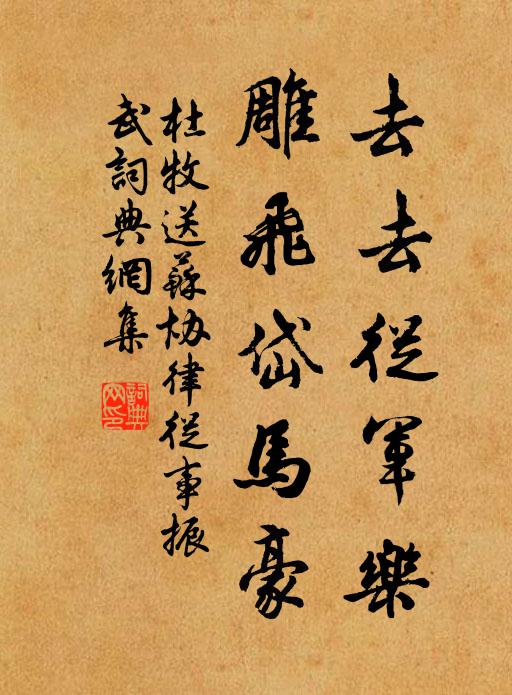 去去從軍樂
雕飛岱馬豪
杜牧送蘇協律從事振
武詞典網集
詞典网印